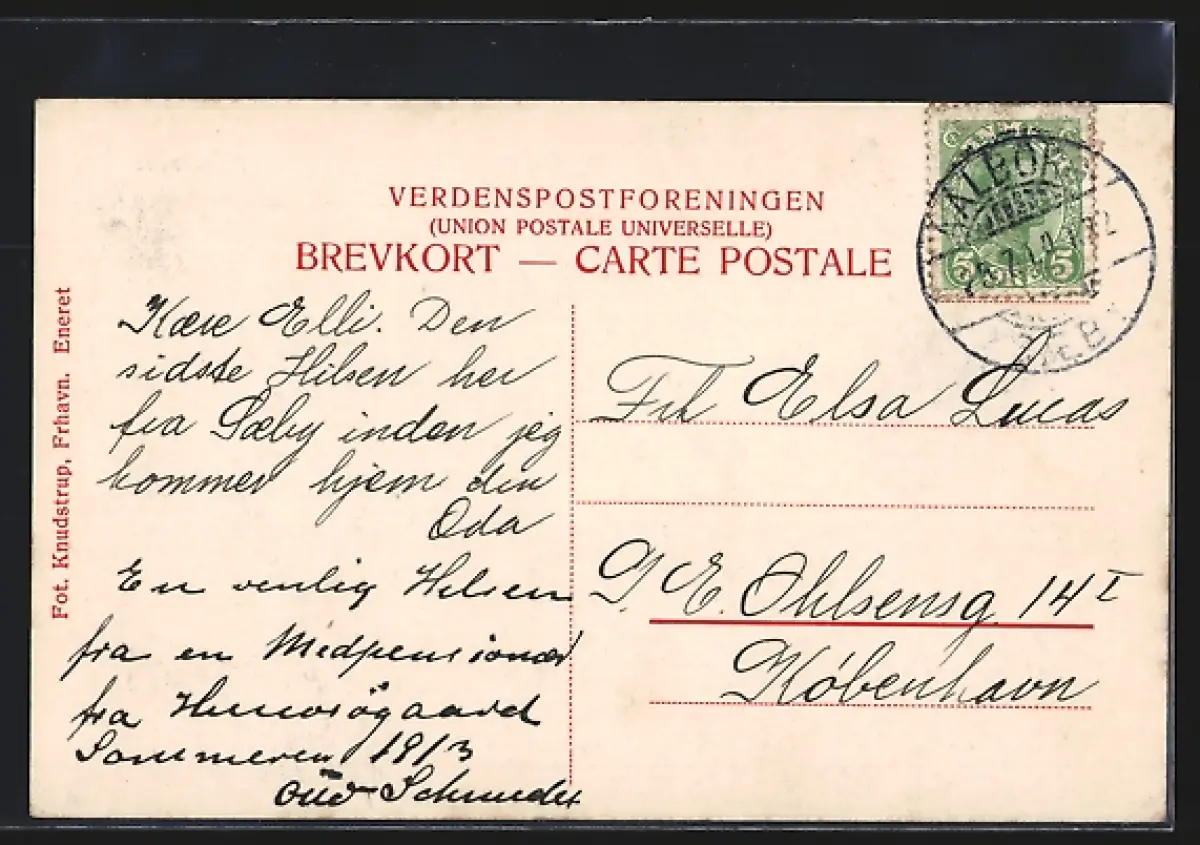 VERDENSPOSTFORENINGEN
(UNION POSTALE UNIVERSELLE)
BREVKORT — CARTE POSTALE
Fot. Knudstrup, Frhavn. Eneret
AALBORG
5 5
Kære Elli. Den
sidste Hilsen her
fra Sæby inden jeg
kommer hjem din
Oda
En venlig Hilsen
fra en Medpensionær
fra
Sommeren 1913
Otto
Frk Elsa Lucas
G. E. Ohlsensg 14 I
København